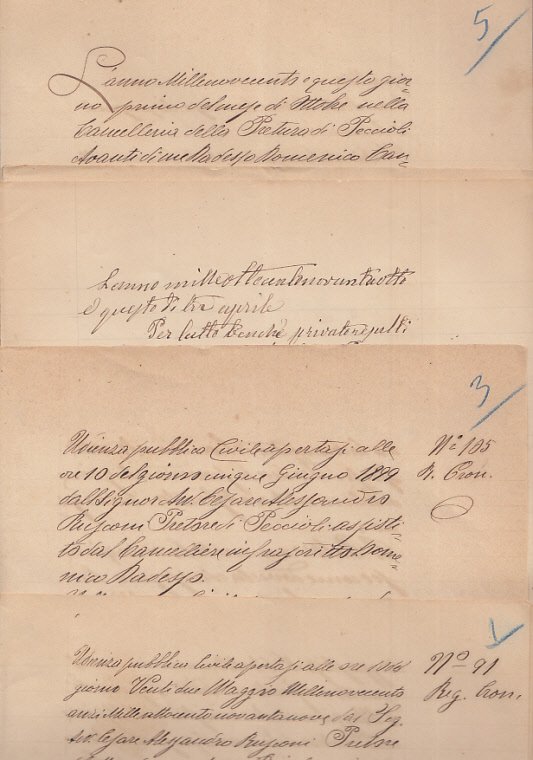 5/
L'anno Millenovecento e questo gior-
no primo del mese di Ottobre nella
Cancelleria della Pretura di Peccioli
Avanti di me Radesso Domenico Can-
L'anno milleottocentonovantotto
e questo dì tre aprile
Per tutto benchè privato
3/
Udienza pubblica Civile apertasi alle
ore 10 del giorno cinque Giugno 1899
dall Signor Avv. Cesare Alessandro
Rusconi Pretore di Peccioli assisti-
to dal Cancelliere infrascritto Dome-
nico Radesso.
No 105
R. Cron.
1/
Udienza pubblica Civile apertasi alle ore
giorno Venti due Maggio Millenovecento
anzi Mille ottocento novantanove dal Sig.
Avv. Cesare Alessandro Rusconi Pretore
No 91
Reg. Cron.